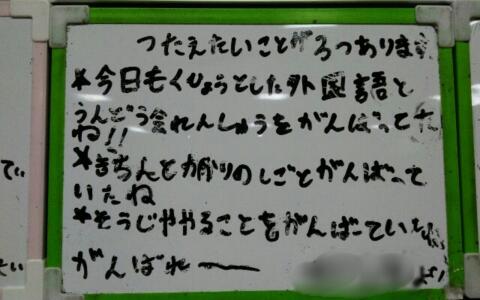 つたえたいことが3つあります
*今日もくひょうとした外国語と
うんどう会れんしゅうをがんばってた
ね!!
*きちんとかかりのしごとがんばって
いたね
*そうじややることをがんばっていたね
がんばれ〜
より
てい